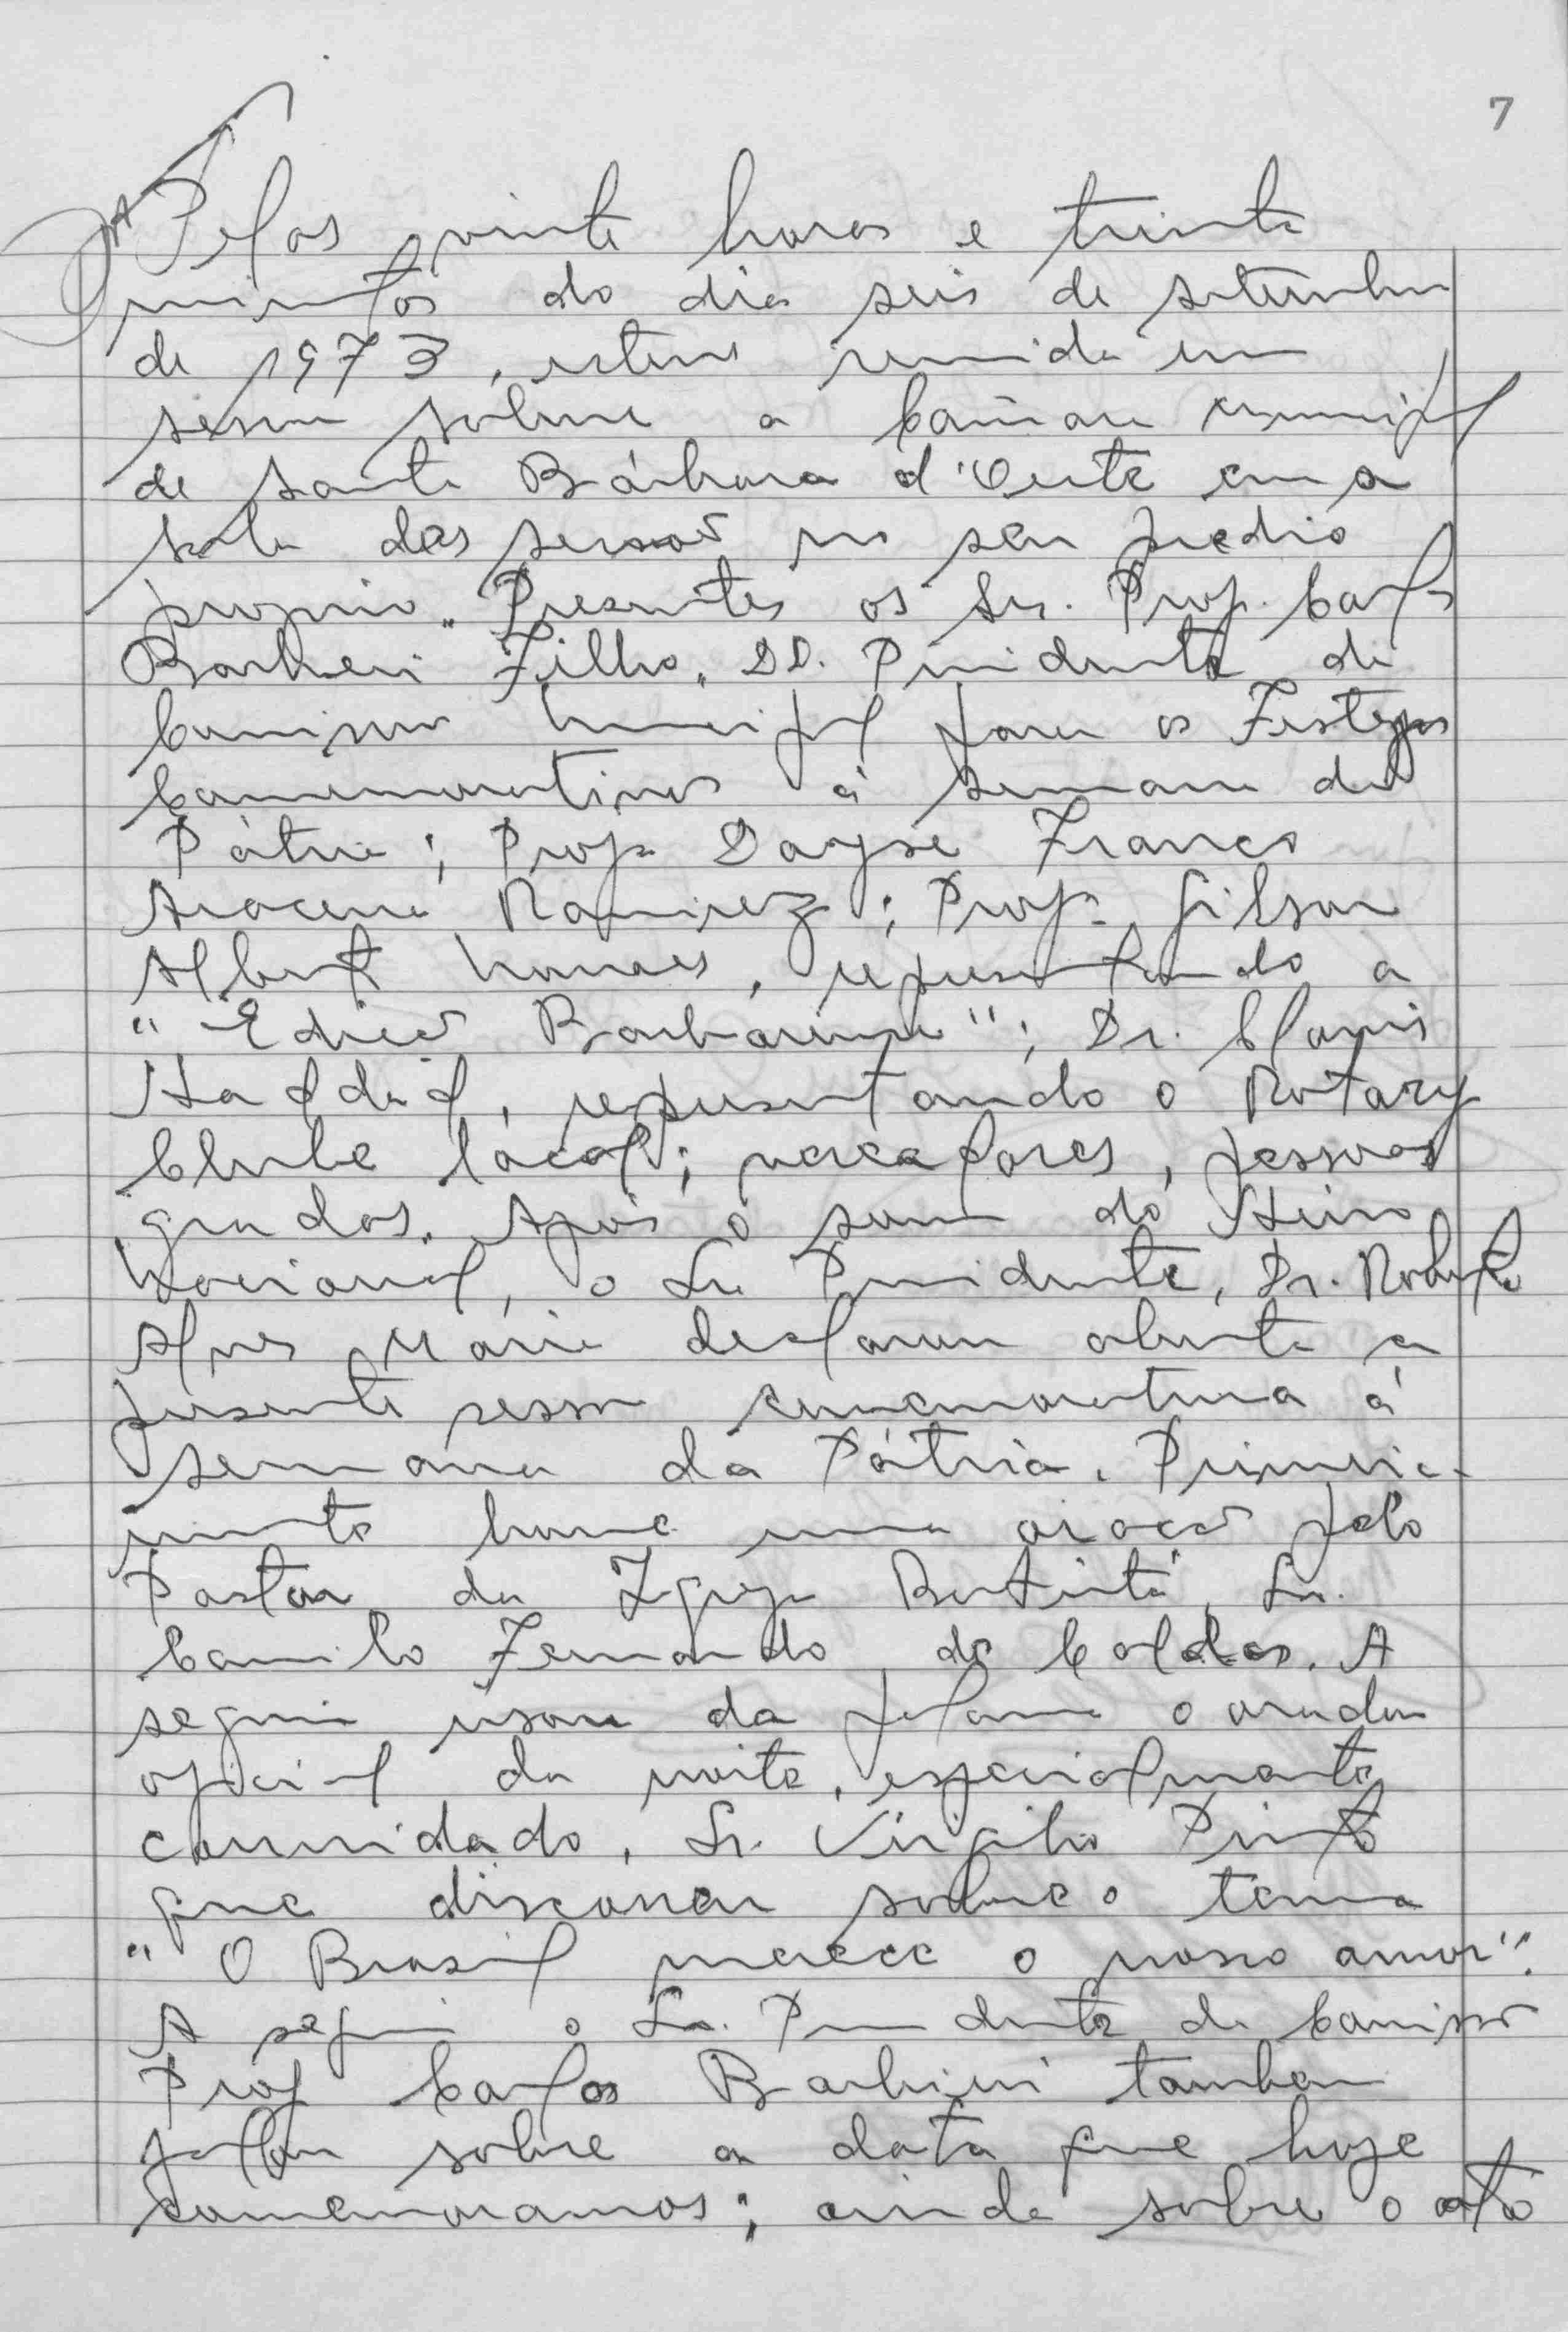 7
Pelas vinte horas e trinta
minutos do dia seis de setembro
de 1973, esteve reunida em
sessão solene a Câmara Municipal
de Santa Bárbara d'Oeste em a
sala das sessões no seu prédio
próprio. Presentes os Srs. Prof. Carlos
Barbieri Filho, DD. Presidente da
Comissão Municipal para os Festejos
Comemorativos à Semana da
Pátria; Profa Dayse Franco
Ramirez; Prof. Gilson
Alberto Novaes, representando a
"Edição Barbarense"; Dr. Clovis
Haddad, representando o Rotary
Clube local; vereadores, pessoas
gradas. Após o som do Hino
Nacional, o Sr. Presidente, Dr. Roberto
Alves declarou aberta a
presente sessão comemorativa à
semana da Pátria. Primeira-
mente houve uma oração pelo
Pastor da Igreja Batista, Sr.
Camilo Fernando de Caldas. A
seguir usou da palavra o orador
oficial da noite, especialmente
convidado, Sr. Virgilio Pinto
que discorreu sobre o tema
"O Brasil merece o nosso amor".
A seguir o Sr. Presidente da Comissão
Prof Carlos Barbieri tambem
falou sobre a data que hoje
comemoramos; ainda sobre o ato